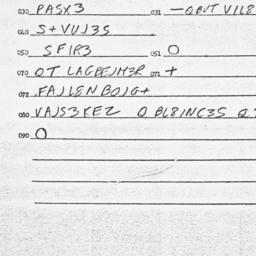 030 PASX3 031 —QBUT VIL8
040 S+VUJ3S
050 SFIR3 051 O
070 OT LAGBEJM3R 071 +
072 FAJLENBOJG+
080 VAJS3KEZ O BL8INC3S
090 O